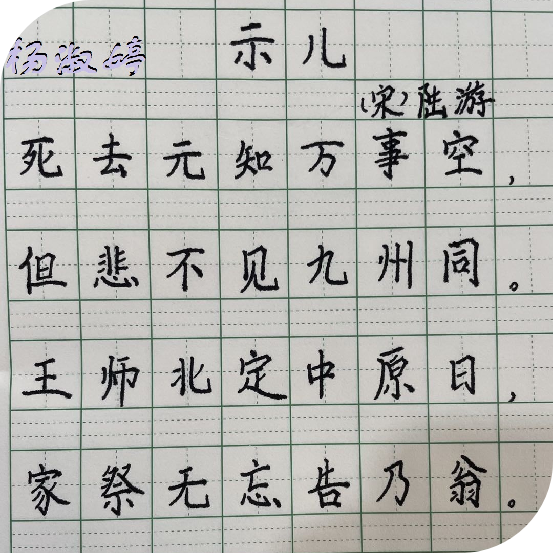 杨淑婷
示儿
(宋)陆游
死去元知万事空,
但悲不见九州同。
王师北定中原日,
家祭无忘告乃翁。